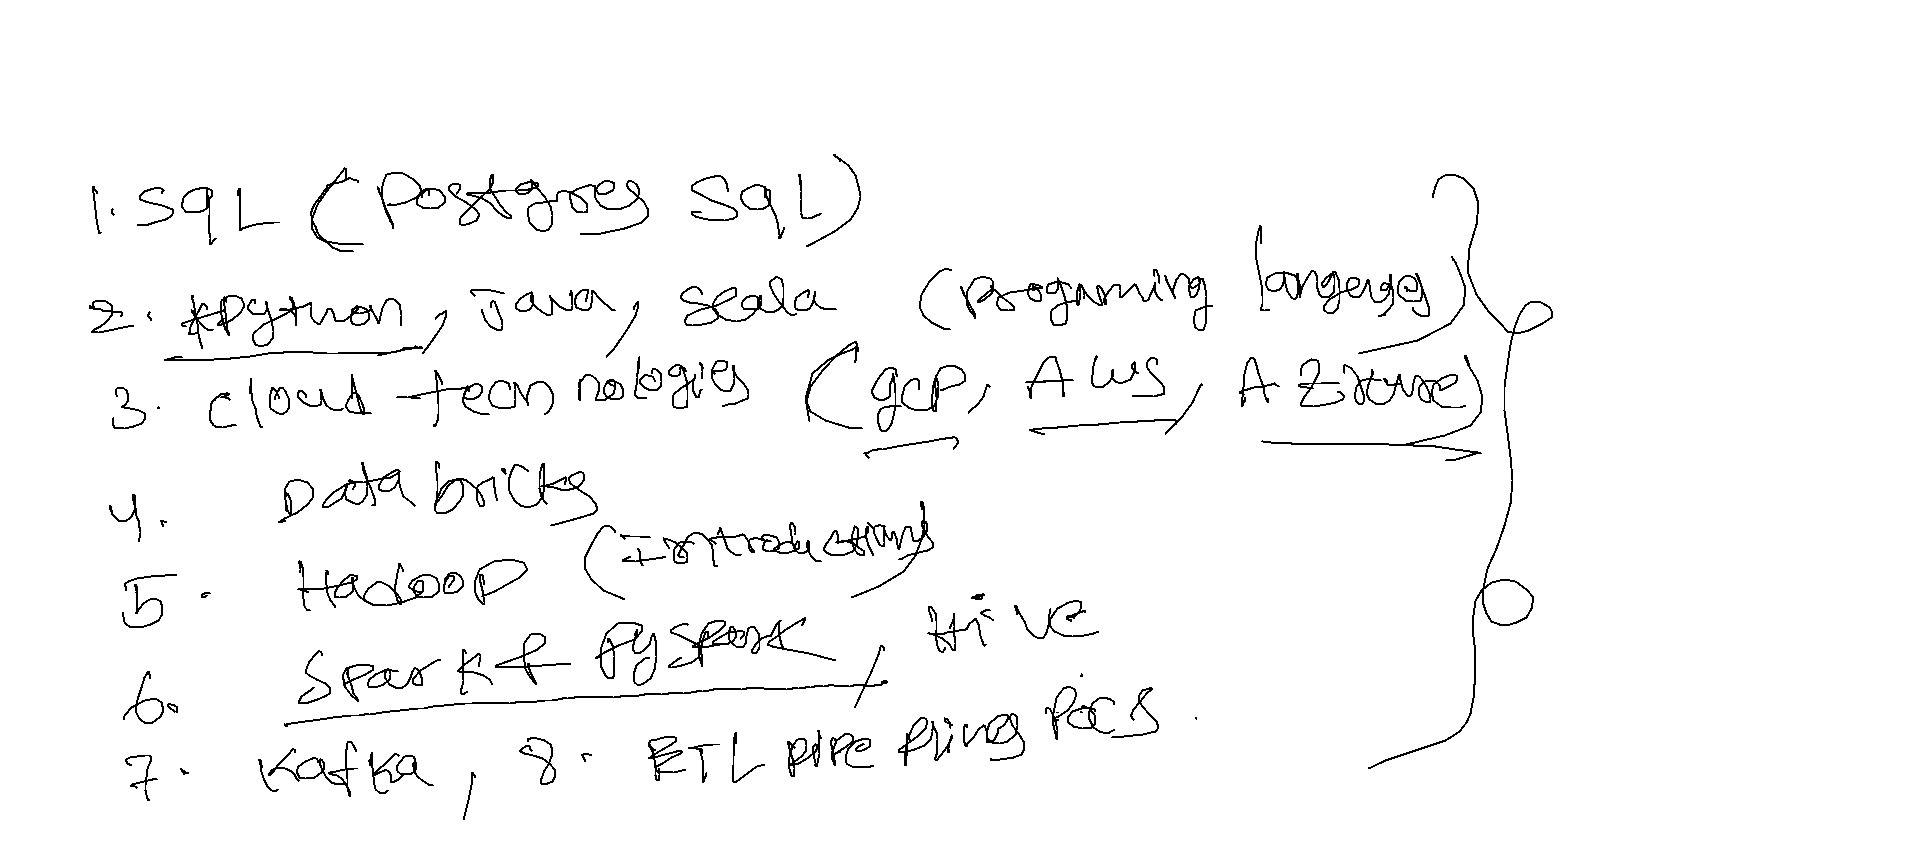 1. SQL (Postgres SQL)
2. Python, Java, Scala (Programing langeges)
3. cloud technologies (gcp, AWS, Azure)
4. Data bricks
5. Hadoop (Introductions)
6. Spark & PySpark, Hive
7. Kafka, 8. ETL pipe plines Pocs.